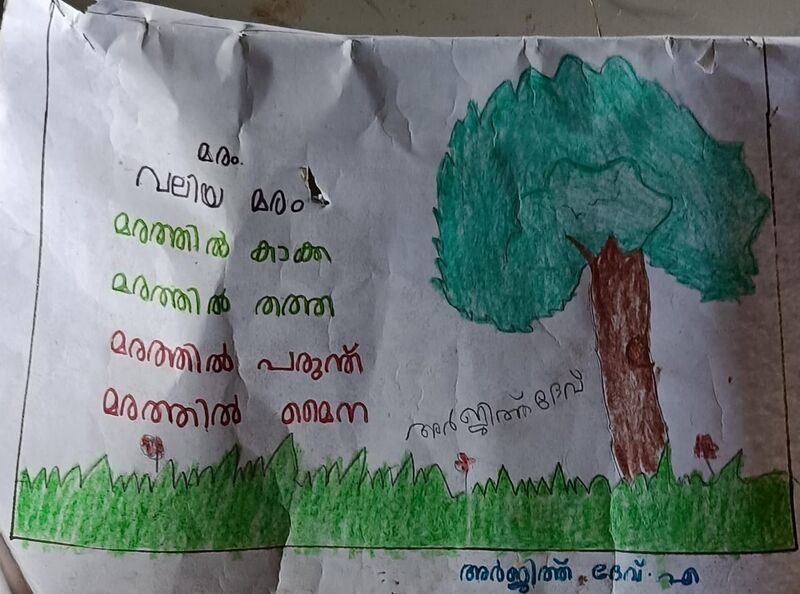 മരം.
വലിയ മരം
മരത്തിൽ കാക്ക
മരത്തിൽ തത്ത
മരത്തിൽ പരുന്ത്
മരത്തിൽ മൈന
അർജ്ജിത്ത് ദേവ്
അർജ്ജിത്ത് ദേവ്. എ